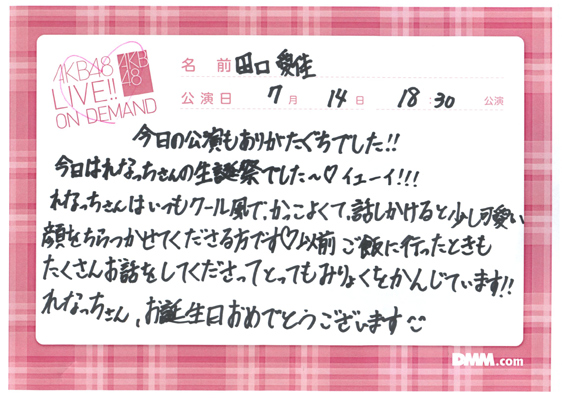 AKB48
LIVE!!
ON DEMAND
AKB
48
名 前 田口 愛佳
公演日 7月 14日 18:30 公演
今日の公演もありがたぐちでした!!
今日はれなっちさんの生誕祭でした〜♡イェーイ!!!
れなっちさんはいつもクール風で、かっこよくて、話しかけると少し可愛い
顔をちらつかせてくださる方です♡以前ご飯に行ったときも
たくさんお話をしてくださってとってもみりょくをかんじています!!
れなっちさん、お誕生日おめでとうございます
DMM.com